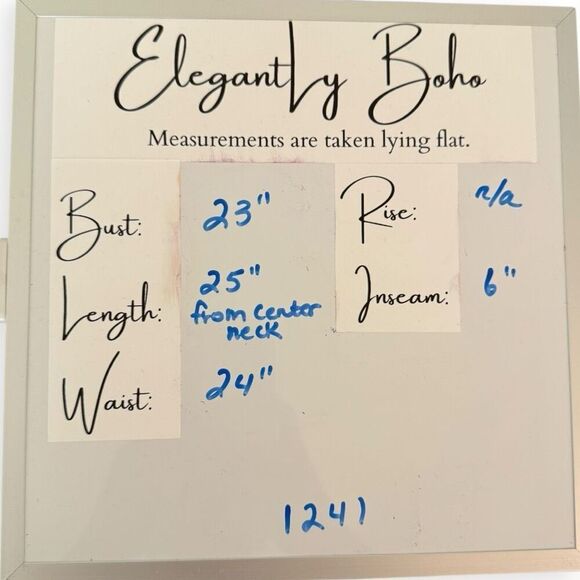 ElegantLy Boho
Measurements are taken lying flat.
Bust: 23" Rise: n/a
Length: 25" Inseam: 6"
from center
neck
Waist: 24"
1241